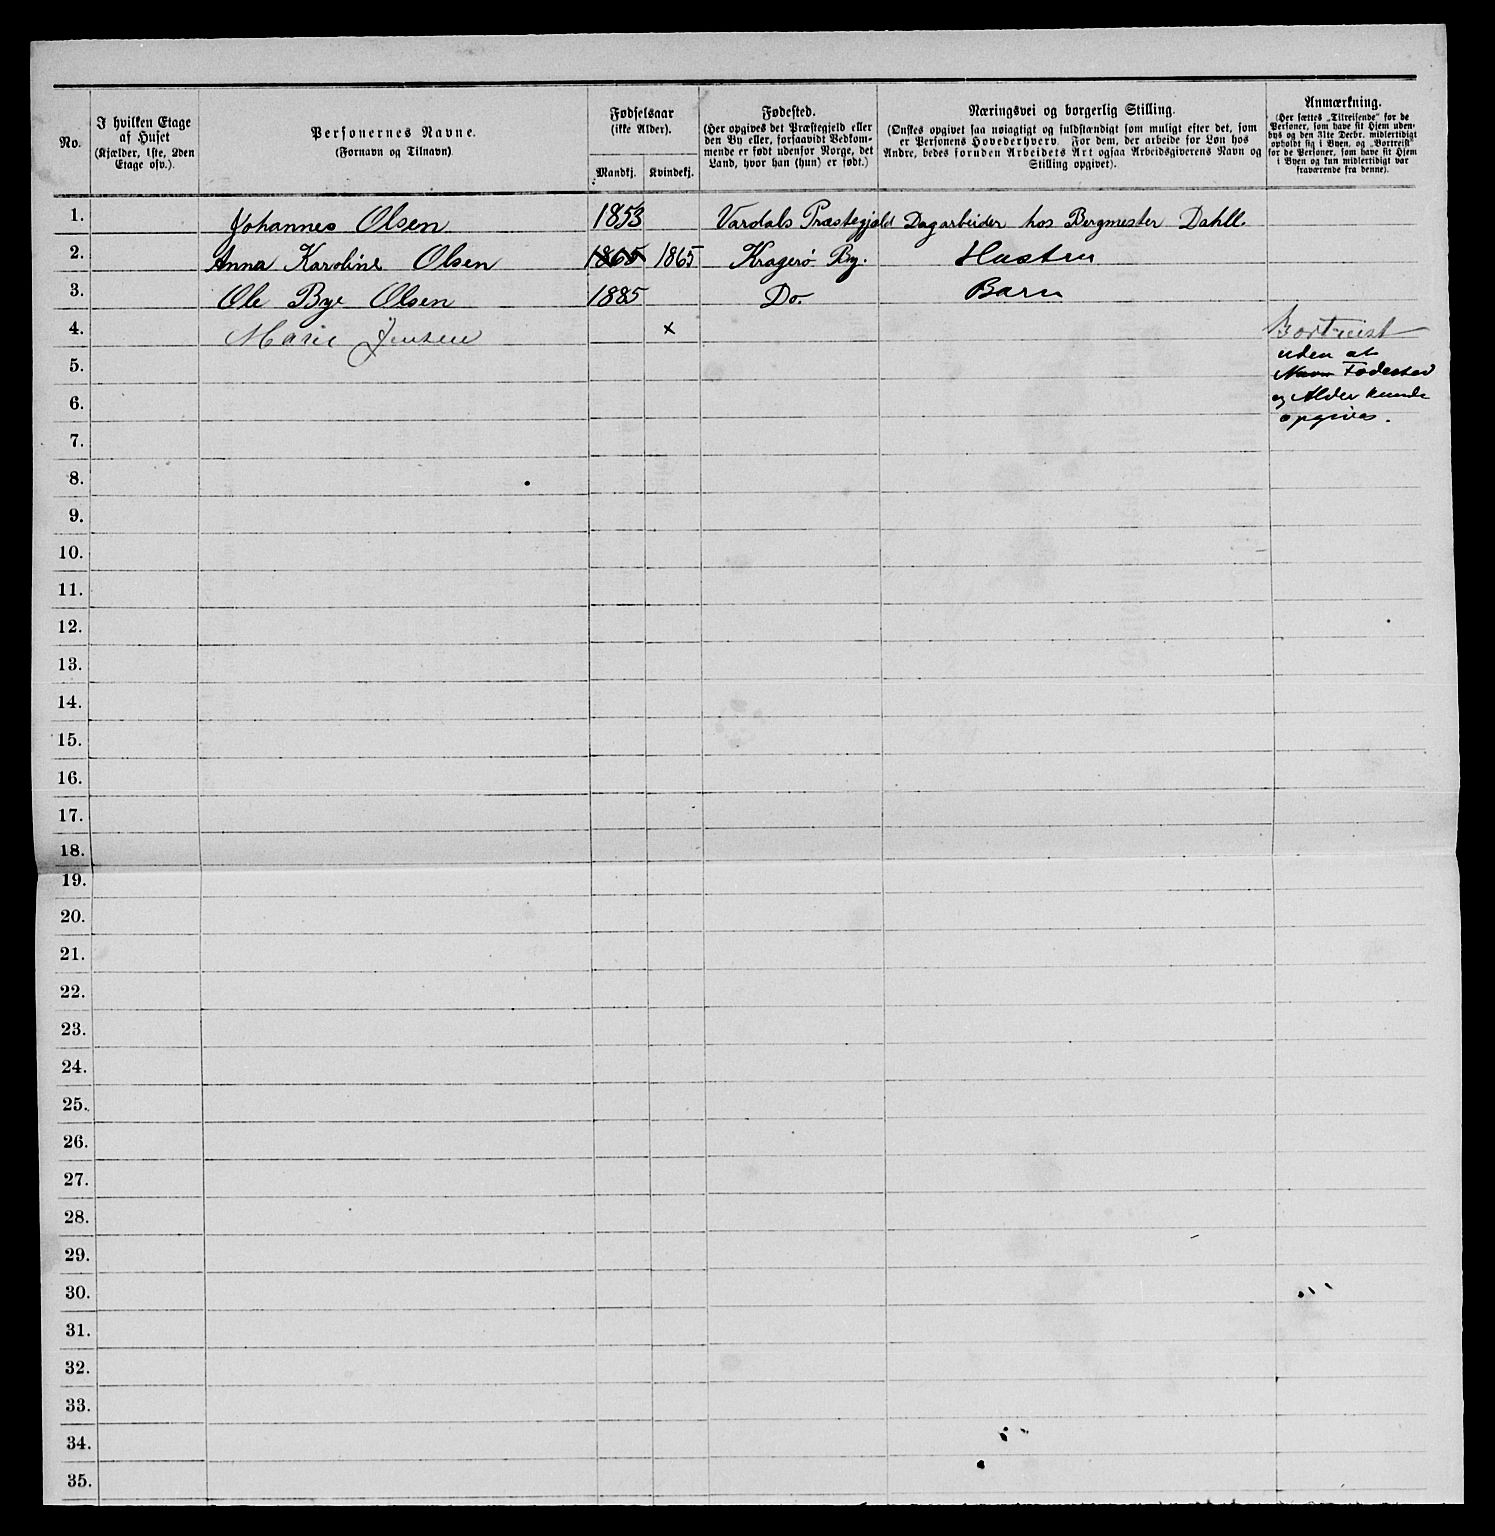 No.
I hvilken Etage
af Huset
(Kjælder, 1ste, 2den
Etage osv.).
Personernes Navne.
(Fornavn og Tilnavn)
Fødselsaar
(ikke Alder).
Mandkj.
Kvindekj.
Fødested.
(Her opgives det Præstegjeld eller
den By eller, forsaavidt Vedkom-
mende er født udenfor Norge, det
Land, hvor han (hun) er født.)
Næringsvei og borgerlig Stilling.
(Ønskes opgivet saa nøiagtigt og fuldstændigt som muligt efter det, som
er Personens Hovederhverv. For dem, der arbeide for Løn hos
Andre, bedes foruden Arbeidets Art ogsaa Arbeidsgiverens Navn og
Stilling opgivet).
Anmærkning.
(Her sættes „Tilreisende" for de
Personer, som have sit Hjem uden-
bys og den 31te Decbr. midlertidigt
opholdt sig i Byen, og „Bortreist"
for de Personer, som have sit Hjem
i Byen og kun midlertidigt var
fraværende fra denne).
1. Johannes Olsen 1853 Vardals Præstegjeld Dagarbeider hos Bergmester Dahll.
2. Anna Karoline Olsen 1865 1865 Kragerø By. Hustru
3. Ole Bye Olsen 1885 Do. Barn
4. Marie Jensen x Bortreist
uden at
5. Navn Fødested
6. og Alder kunde
opgives.
7.
8.
9.
10.
11.
12.
13.
14.
15.
16.
17.
18.
19.
20.
21.
22.
23.
24.
25.
26.
27.
28.
29.
30.
31.
32.
33.
34.
35.